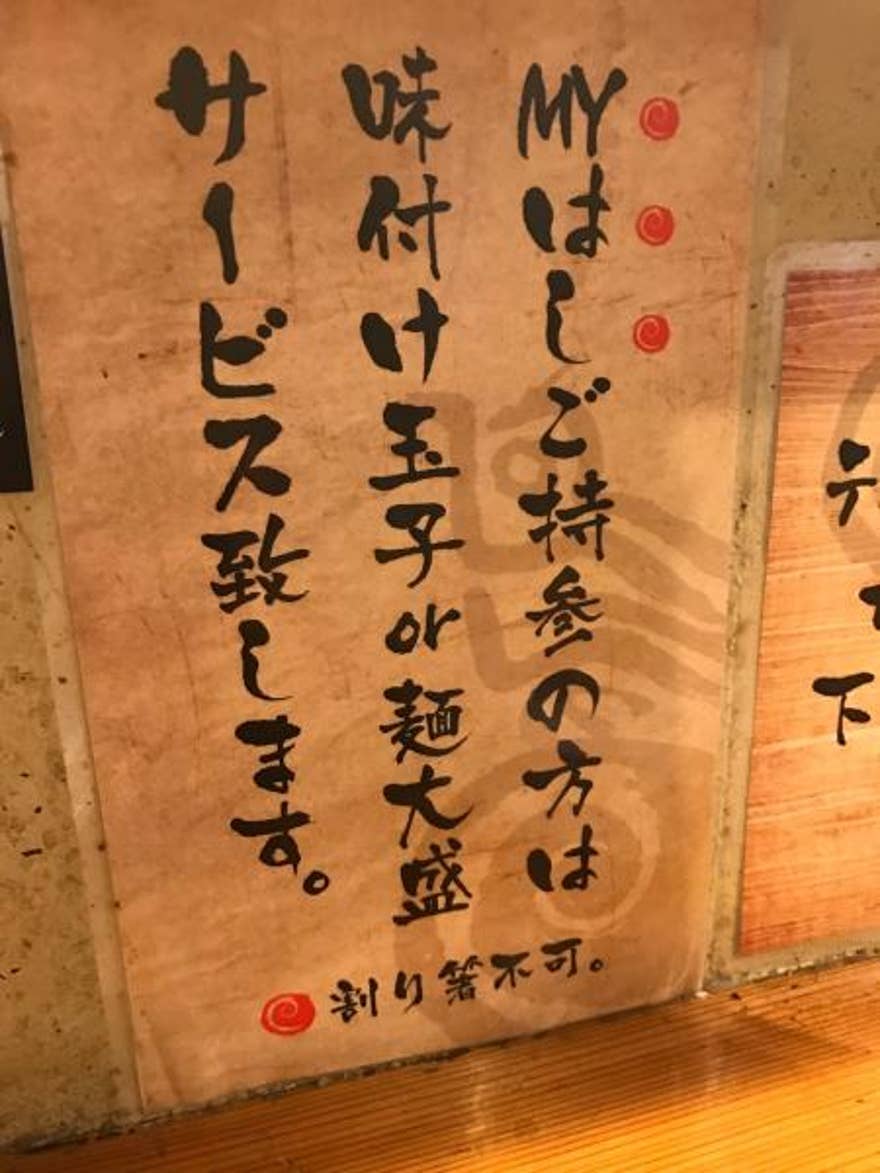 MYはしご持参の方は
味付け玉子or麺大盛
サービス致します。
割り箸不可。
下